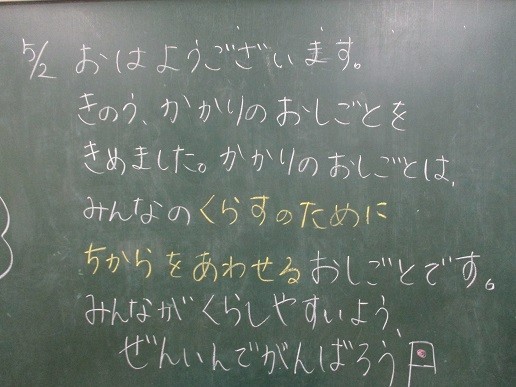 5/2 おはようございます。
きのう、かかりのおしごとを
きめました。かかりのおしごとは、
みんなのくらすのために
ちからをあわせるおしごとです。
みんながくらしやすいよう、
ぜんいんでがんばろう